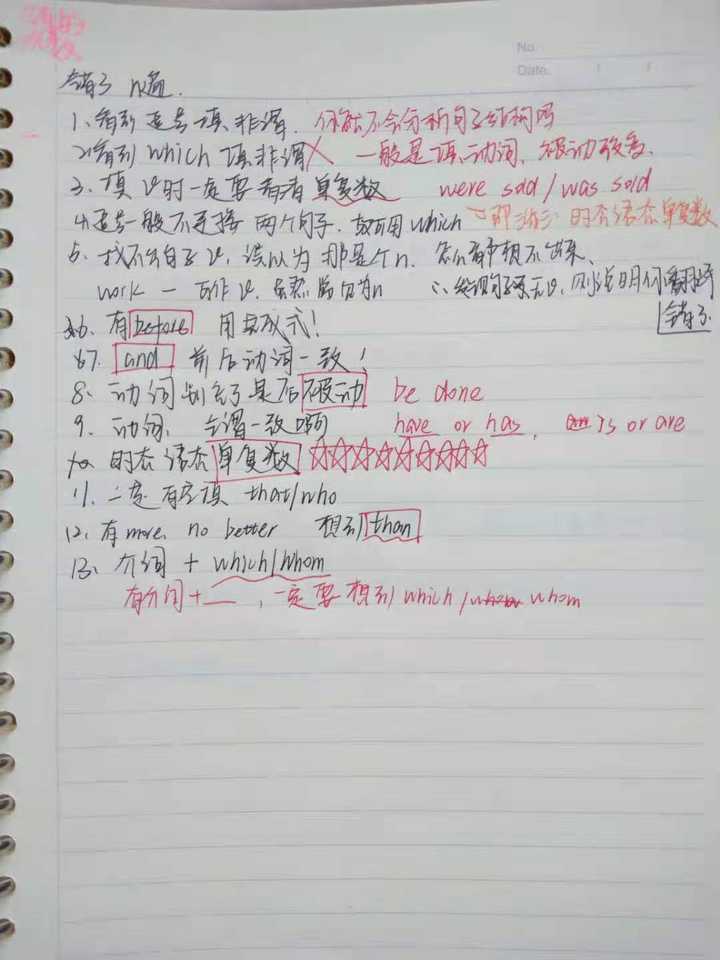 No.
Date.
错了 n遍.
1、看到逗号填非谓. 你能不会分析句子结构吗
2、看到 which 填非谓 一般是填动词、被动较多.
3、填 v 时一定要看看单复数 were sold / was sold
4、逗号一般不连接两个句子. 故可用 which 时态语态单复数
5、找不出句子 v, 误以为那是个 n. 怎么都想不出来、
work 一 可作 v. ∴ 发现句子无 v, 则说明你翻译
错了.
6. 有 before 用完成式!
7. and 前后动词一致!
8、动词划线了是否被动 be done
9、动词、主谓一致啊 have or has, is or are
时态语态单复数 ☆☆☆☆☆☆☆☆☆
11. 一定 填 that/who
12、有 more, no better 想到 than
13、介词 + which/whom
有介词+__, 一定要想到 which / whom